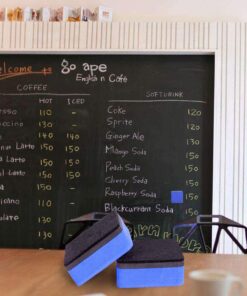 elcome to go ape
English Café
COFFEE
HOT ICED
resso 110 -
ccino 130 -
n 140 140
nut Latte 150 150
la Latte 150 150
l Latte 150 150
150 -
ano 110 -
150 -
olate 130 -
130
SOFTDRINK
Coke 120
Sprite 120
Ginger Ale 130
Mango Soda 150
Peach Soda 150
Cherry Soda 150
Raspberry Soda 150
Blackcurrant Soda 150